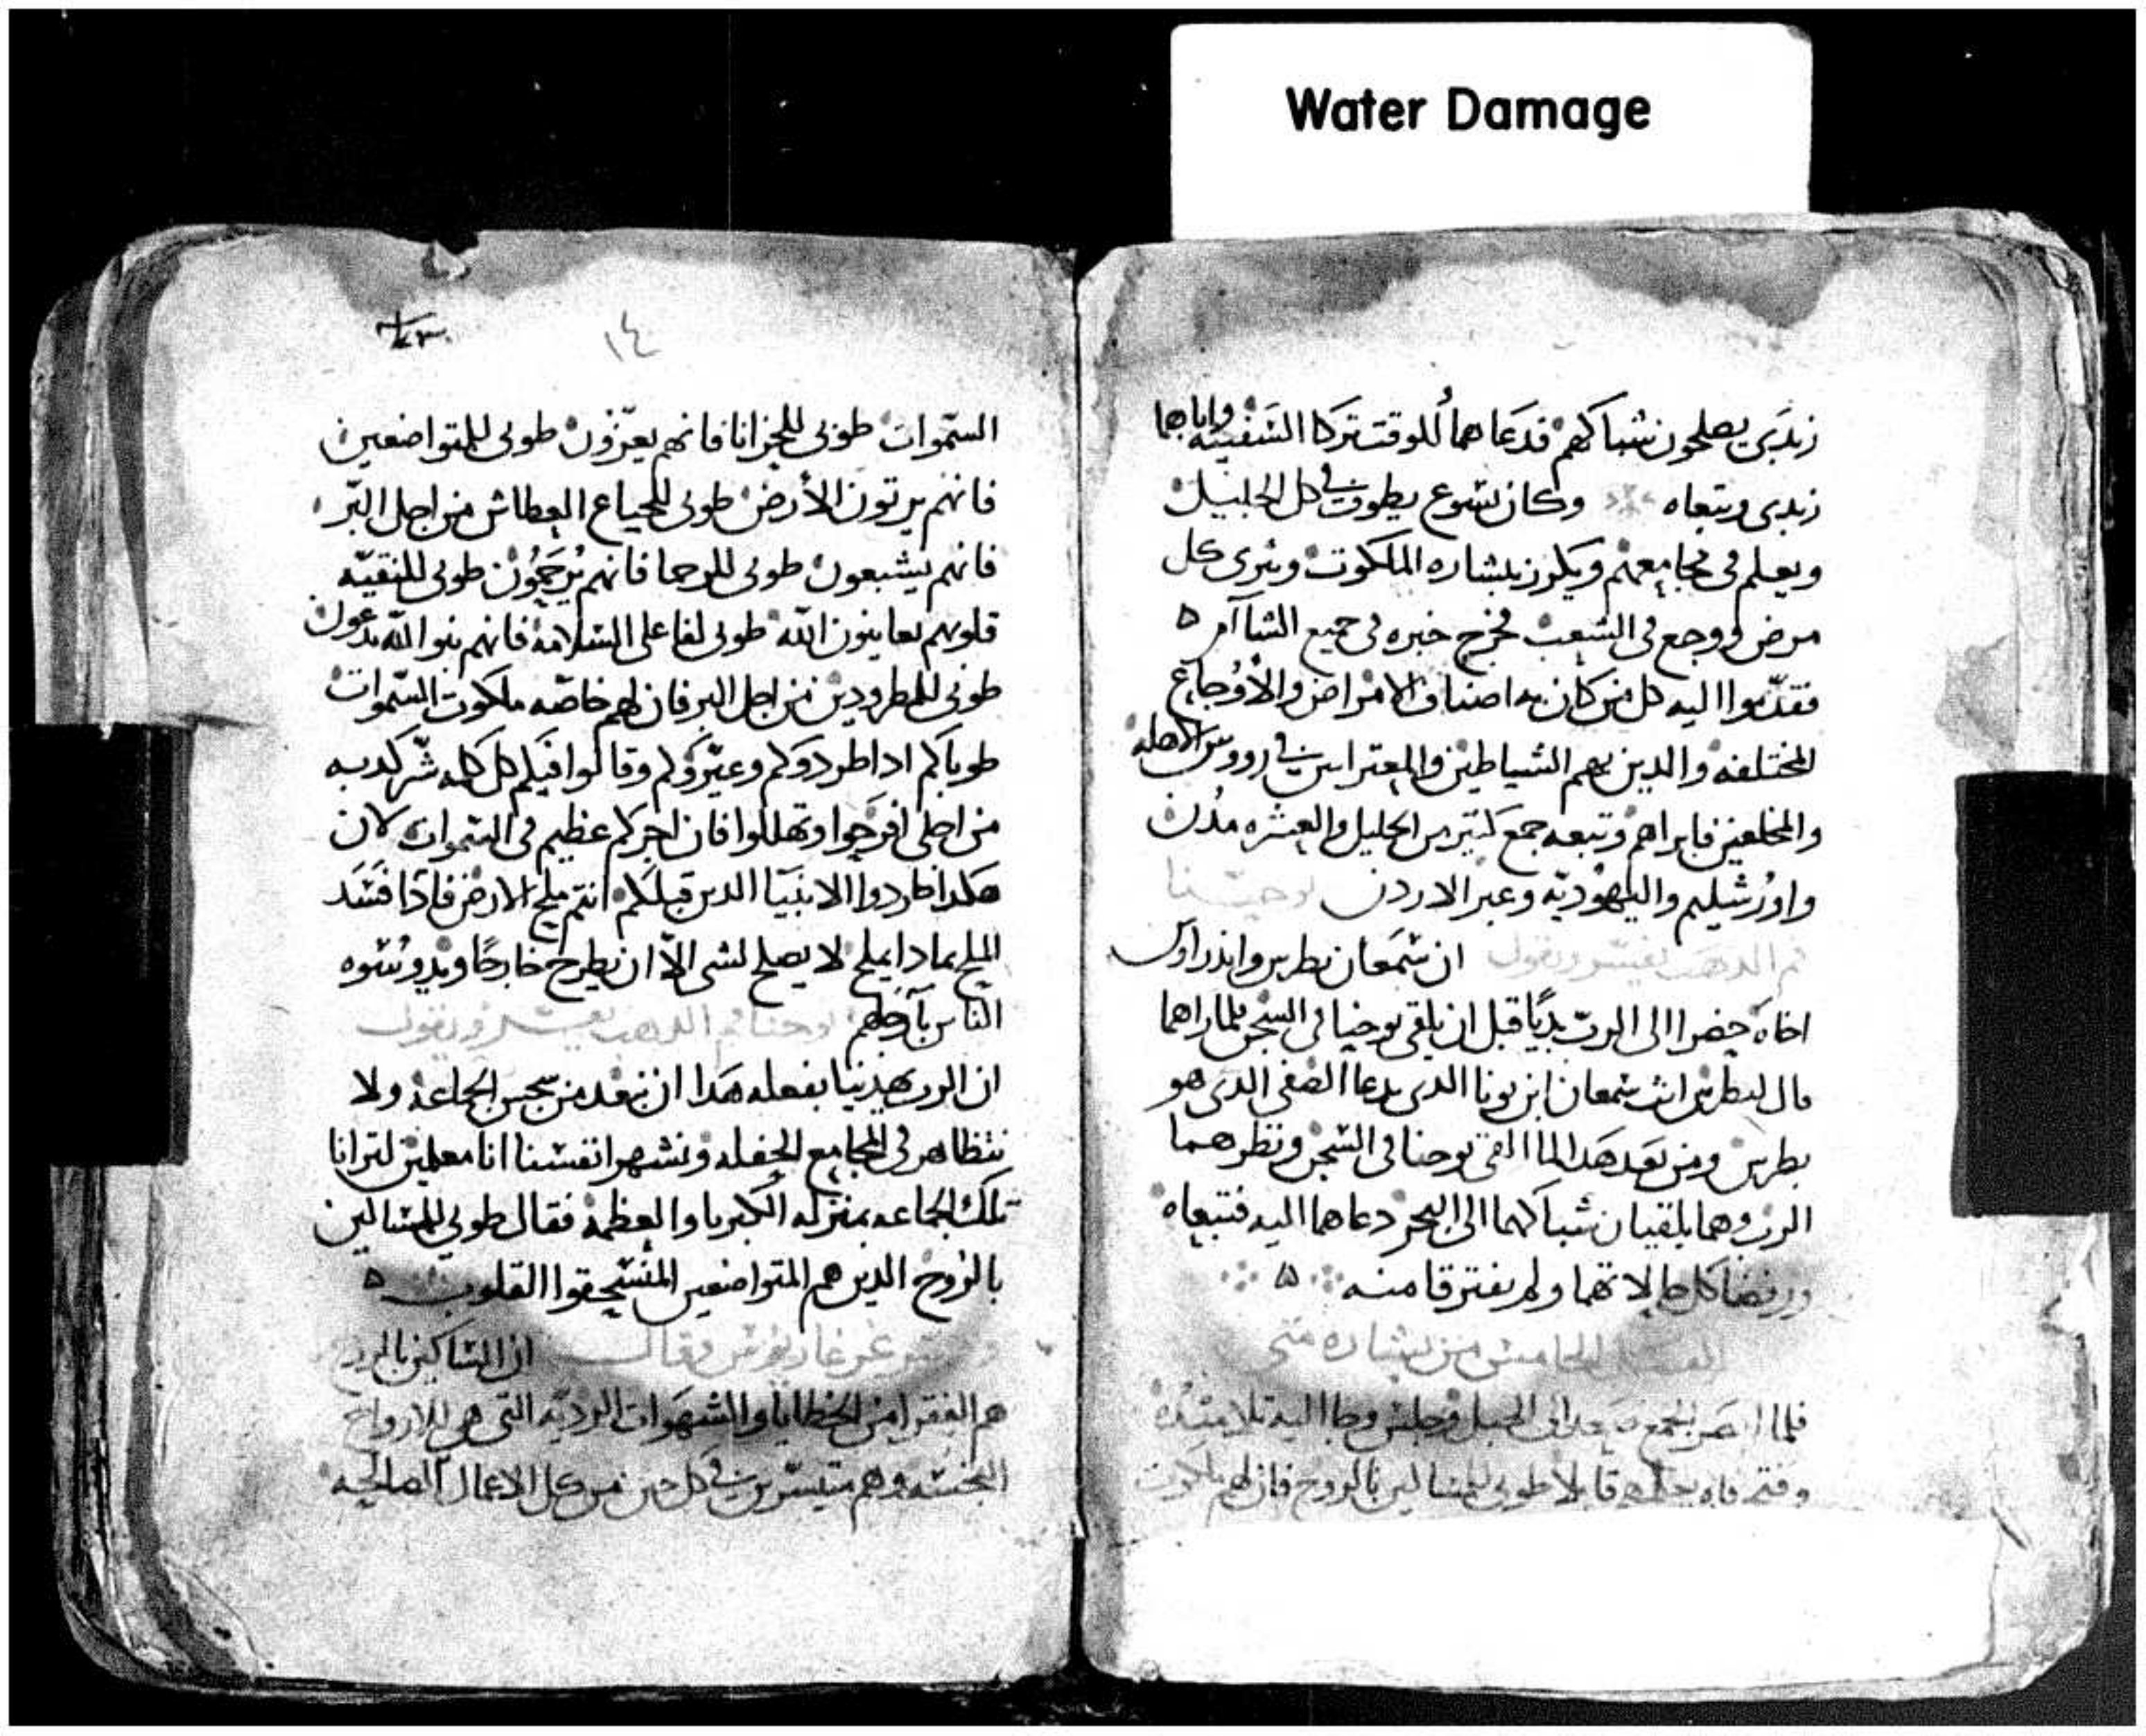 Water Damage
زبدى يصلحون شباكهم فدعاهما للوقت تركا السفينه واباهما
زبدى وتبعاه وكان يسوع يطوف في كل الجليل
ويعلم فى مجامعهم ويكرز ببشاره الملكوت ويبرى كل
مرض ووجع فى الشعب فخرج خبره فى جميع الشاآم
فقدموا اليه كل من كان به اصناف الامراض والاوجاع
المختلفه والدين بهم الشياطين والمعترايين في رووس الاهله
والمخلعين فابراهم وتبعه جمع كتير من الجليل والعشره مدن
واورشليم واليهوديه وعبر الاردن يوحنا
فم الدهب يفسر ويقول ان شمعان بطرس واندراوس
اخاه حضرا الى الرب بديا قبل ان يلقى يوحنا فى السجن فلما راهما
قال لبطرس انت شمعان ابن يونا الدى يدعا الصفى الدى هو
بطرس ومن بعد هدا لما القى يوحنا فى السجن ونظرهما
الرب وهما يلقيان شباكهما الى البحر دعاهما اليه فتبعاه
ورفضا كل حالاتهما ولم يفترقا منه
الفصل الخامس من بشاره متى
فلما ابصر الجمع صعد الى الجبل وجلس وجا اليه تلاميده
وفتح فاه يعلمهم قايلا طوبى للمساكين بالروح فان لهم ملكوت
١٤
السموات طوبى للحزانا فانهم يعزون طوبى للمتواضعين
فانهم يرتون الأرض طوبى للجياع العطاش من اجل البر
فانهم يشبعون طوبى للرحما فانهم يُرحمون طوبى للنقيه
قلوبهم يعاينون الله طوبى لفاعلى السلامه فانهم بنوا الله يدعون
طوبى للمطرودين من اجل البر فان لهم خاصه ملكوت السموات
طوباكم ادا طردوكم وعيروكم وقالوا فيكم كل كلمه شر كدبه
من اجلى افرحوا وتهللوا فان اجركم عظيم فى السموات لان
هكدا طردوا الانبيا الدين قبلكم انتم ملح الارض فادا فسد
الملح بمادا يملح لا يصلح لشى الا ان يطرح خارجا ويدوسوه
الناس بآرجلهم يوحنا فم الدهب يفسر ويقول
ان الرب يهدينا بفعله هدا ان نبعد من سجس الجماعه ولا
نتظاهر فى المجامع الحفله ونشهر انفسنا انا معلمين لترانا
تلك الجماعه بمنزله الكبريا والعظمه فقال طوبى للمساكين
بالروح الدين هم المتواضعين المنسحقوا القلوب
غريغاريوس وقال ان المساكين بالروح
هم الفقرا من الخطايا والشهوات الرديه التى هى للارواح
النجسه وهم متيسرين في كل حين من كل الاعمال الصالحه